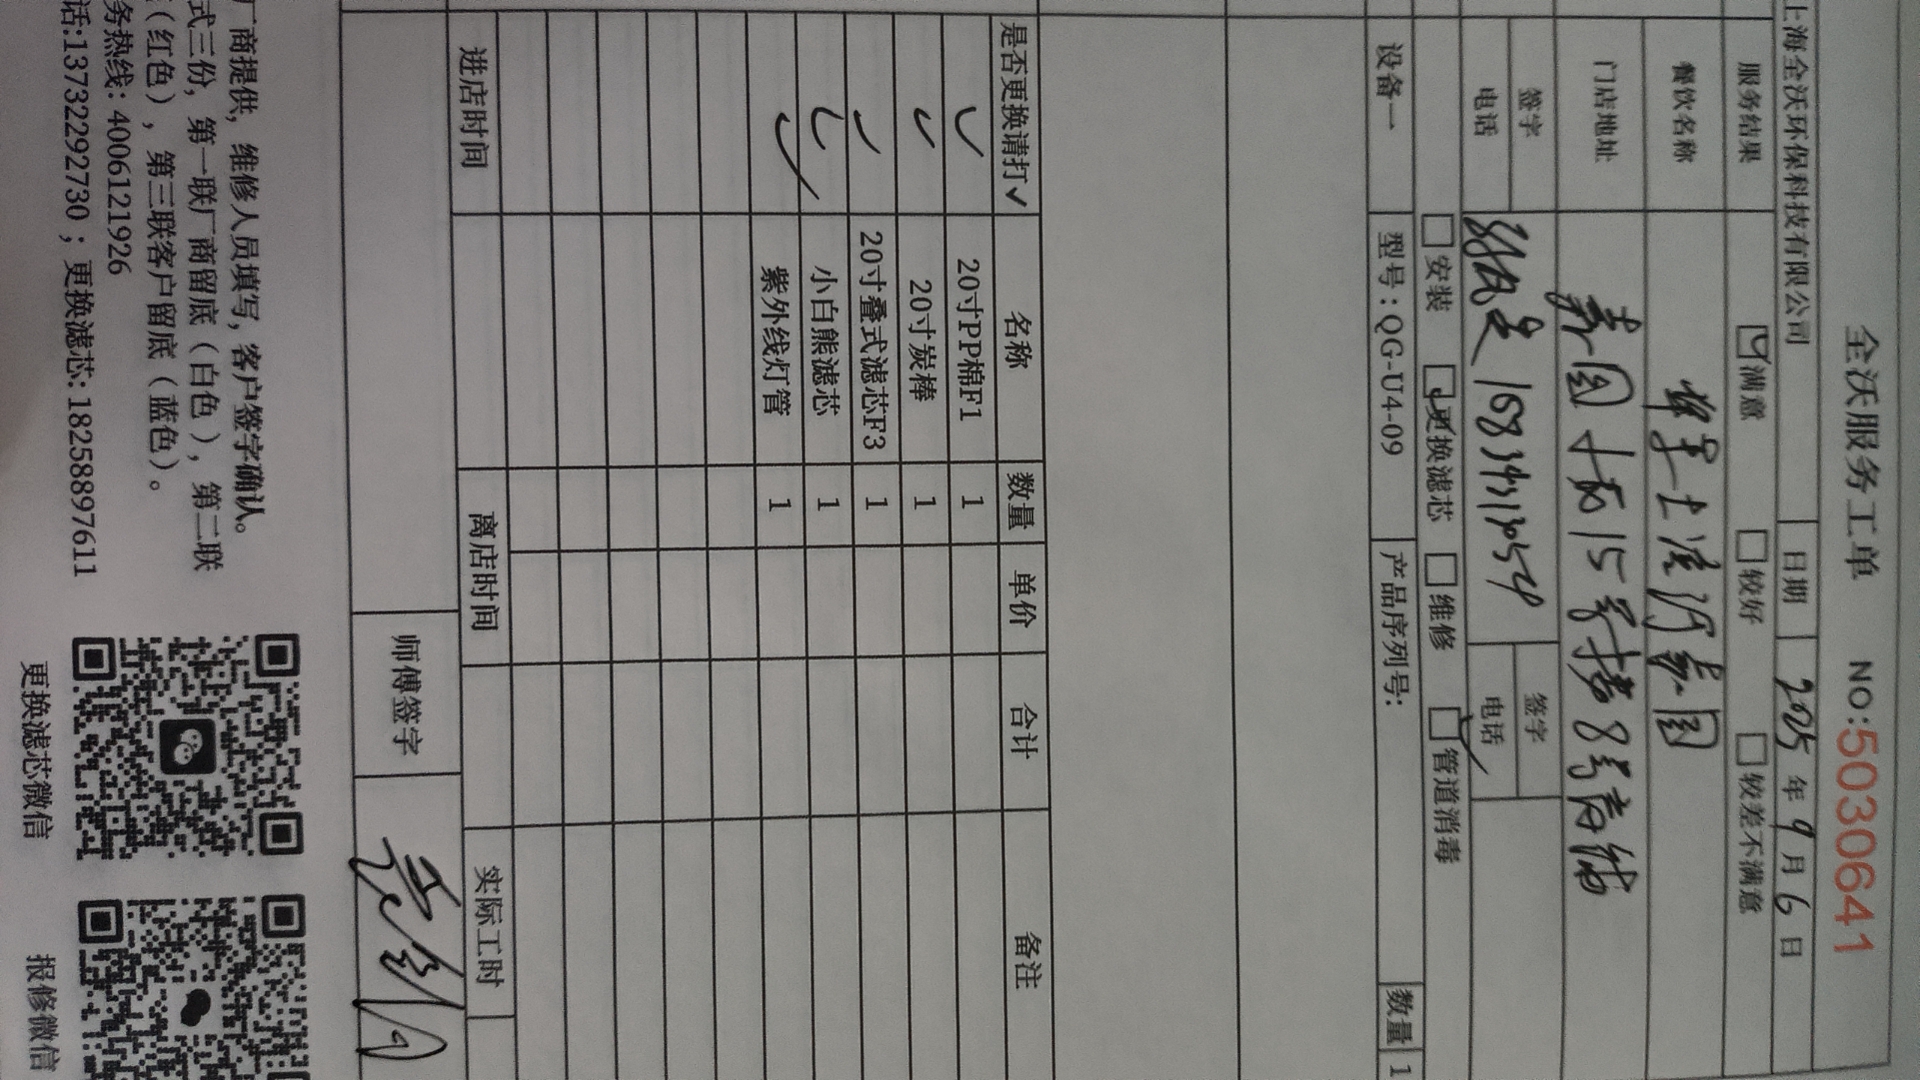 全沃服务工单 NO:5030641
上海全沃环保科技有限公司 日期 2025年9月6日
服务结果 满意 较好 较差不满意
餐饮名称
门店地址
签字 签字
电话 电话
安装 更换滤芯 维修 管道消毒
设备一 型号:QG-U4-09 产品序列号: 数量 1
是否更换请打✓ 名称 数量 单价 合计 备注
✓ 20寸PP棉F1 1
✓ 20寸炭棒 1
✓ 20寸叠式滤芯F3 1
✓ 小白熊滤芯 1
✓ 紫外线灯管 1
进店时间 离店时间 实际工时
师傅签字
厂商提供, 维修人员填写, 客户签字确认。
式三份, 第一联厂商留底（白色）, 第二联
（红色）, 第三联客户留底（蓝色）。
务热线: 4006121926
话:13732292730 ; 更换滤芯: 18258897611
更换滤芯微信 报修微信